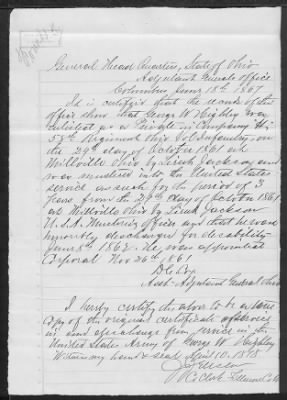 General Head Quarters, State of Ohio
Adjutant Generals Office
Columbus June 18th 1867
It is certified that the records of this
office show that George W Highly was
enlisted as a Private in Company H,
58th Regiment Ohio Vol Infantry on
the 29th day of October 1861 at
Millville Ohio by Lieut Jackson and
was mustered into the United States
service as such for the period of 3
years from the 29th day of October 1861
at Millville Ohio by Lieut Jackson
U.S.A. Mustering officer and that he was
honorably discharged for disability
June 8th 1862. He was appointed
Corporal Nov 26th 1861
Asst Adjutant General Ohio
I hereby certify the above to be a true
Copy of the original certificate of service
in and discharge from service in the
United States Army of George W Highly
Witness my hand & seal April 10 1878
Clerk